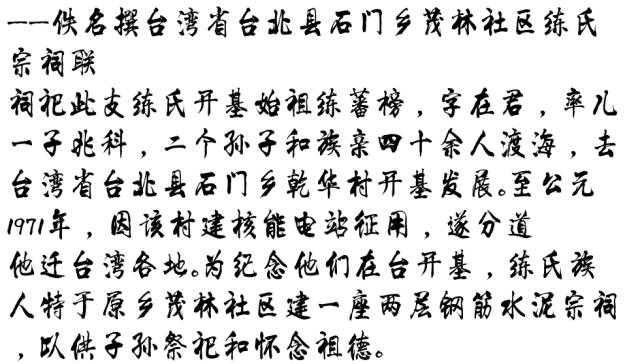 ——佚名撰台湾省台北县石门乡茂林社区练氏
宗祠联
祠祀此支练氏开基始祖练蕃榜，字在君，率儿
一子兆科，二个孙子和族亲四十余人渡海，去
台湾省台北县石门乡乾华村开基发展。至公元
1971年，因该村建核能电站征用，遂分道
他迁台湾各地。为纪念他们在台开基，练氏族
人特于原乡茂林社区建一座两层钢筋水泥宗祠
，以供子孙祭祀和怀念祖德。